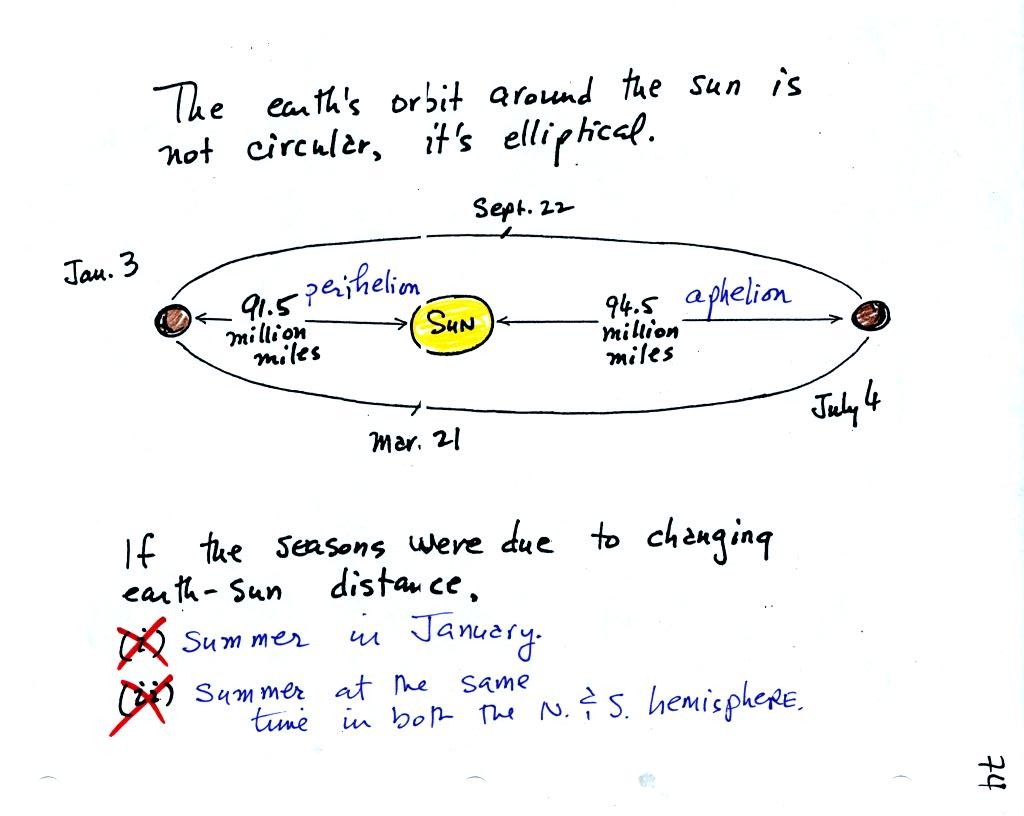 The earth's orbit around the sun is
not circular, it's elliptical.
Sept. 22
Jan. 3
91.5
million
miles
perihelion
SUN
94.5
million
miles
aphelion
July 4
Mar. 21
If the seasons were due to changing
earth-sun distance,
(i) Summer in January.
(ii) Summer at the same
time in both the N. & S. hemisphere.
74